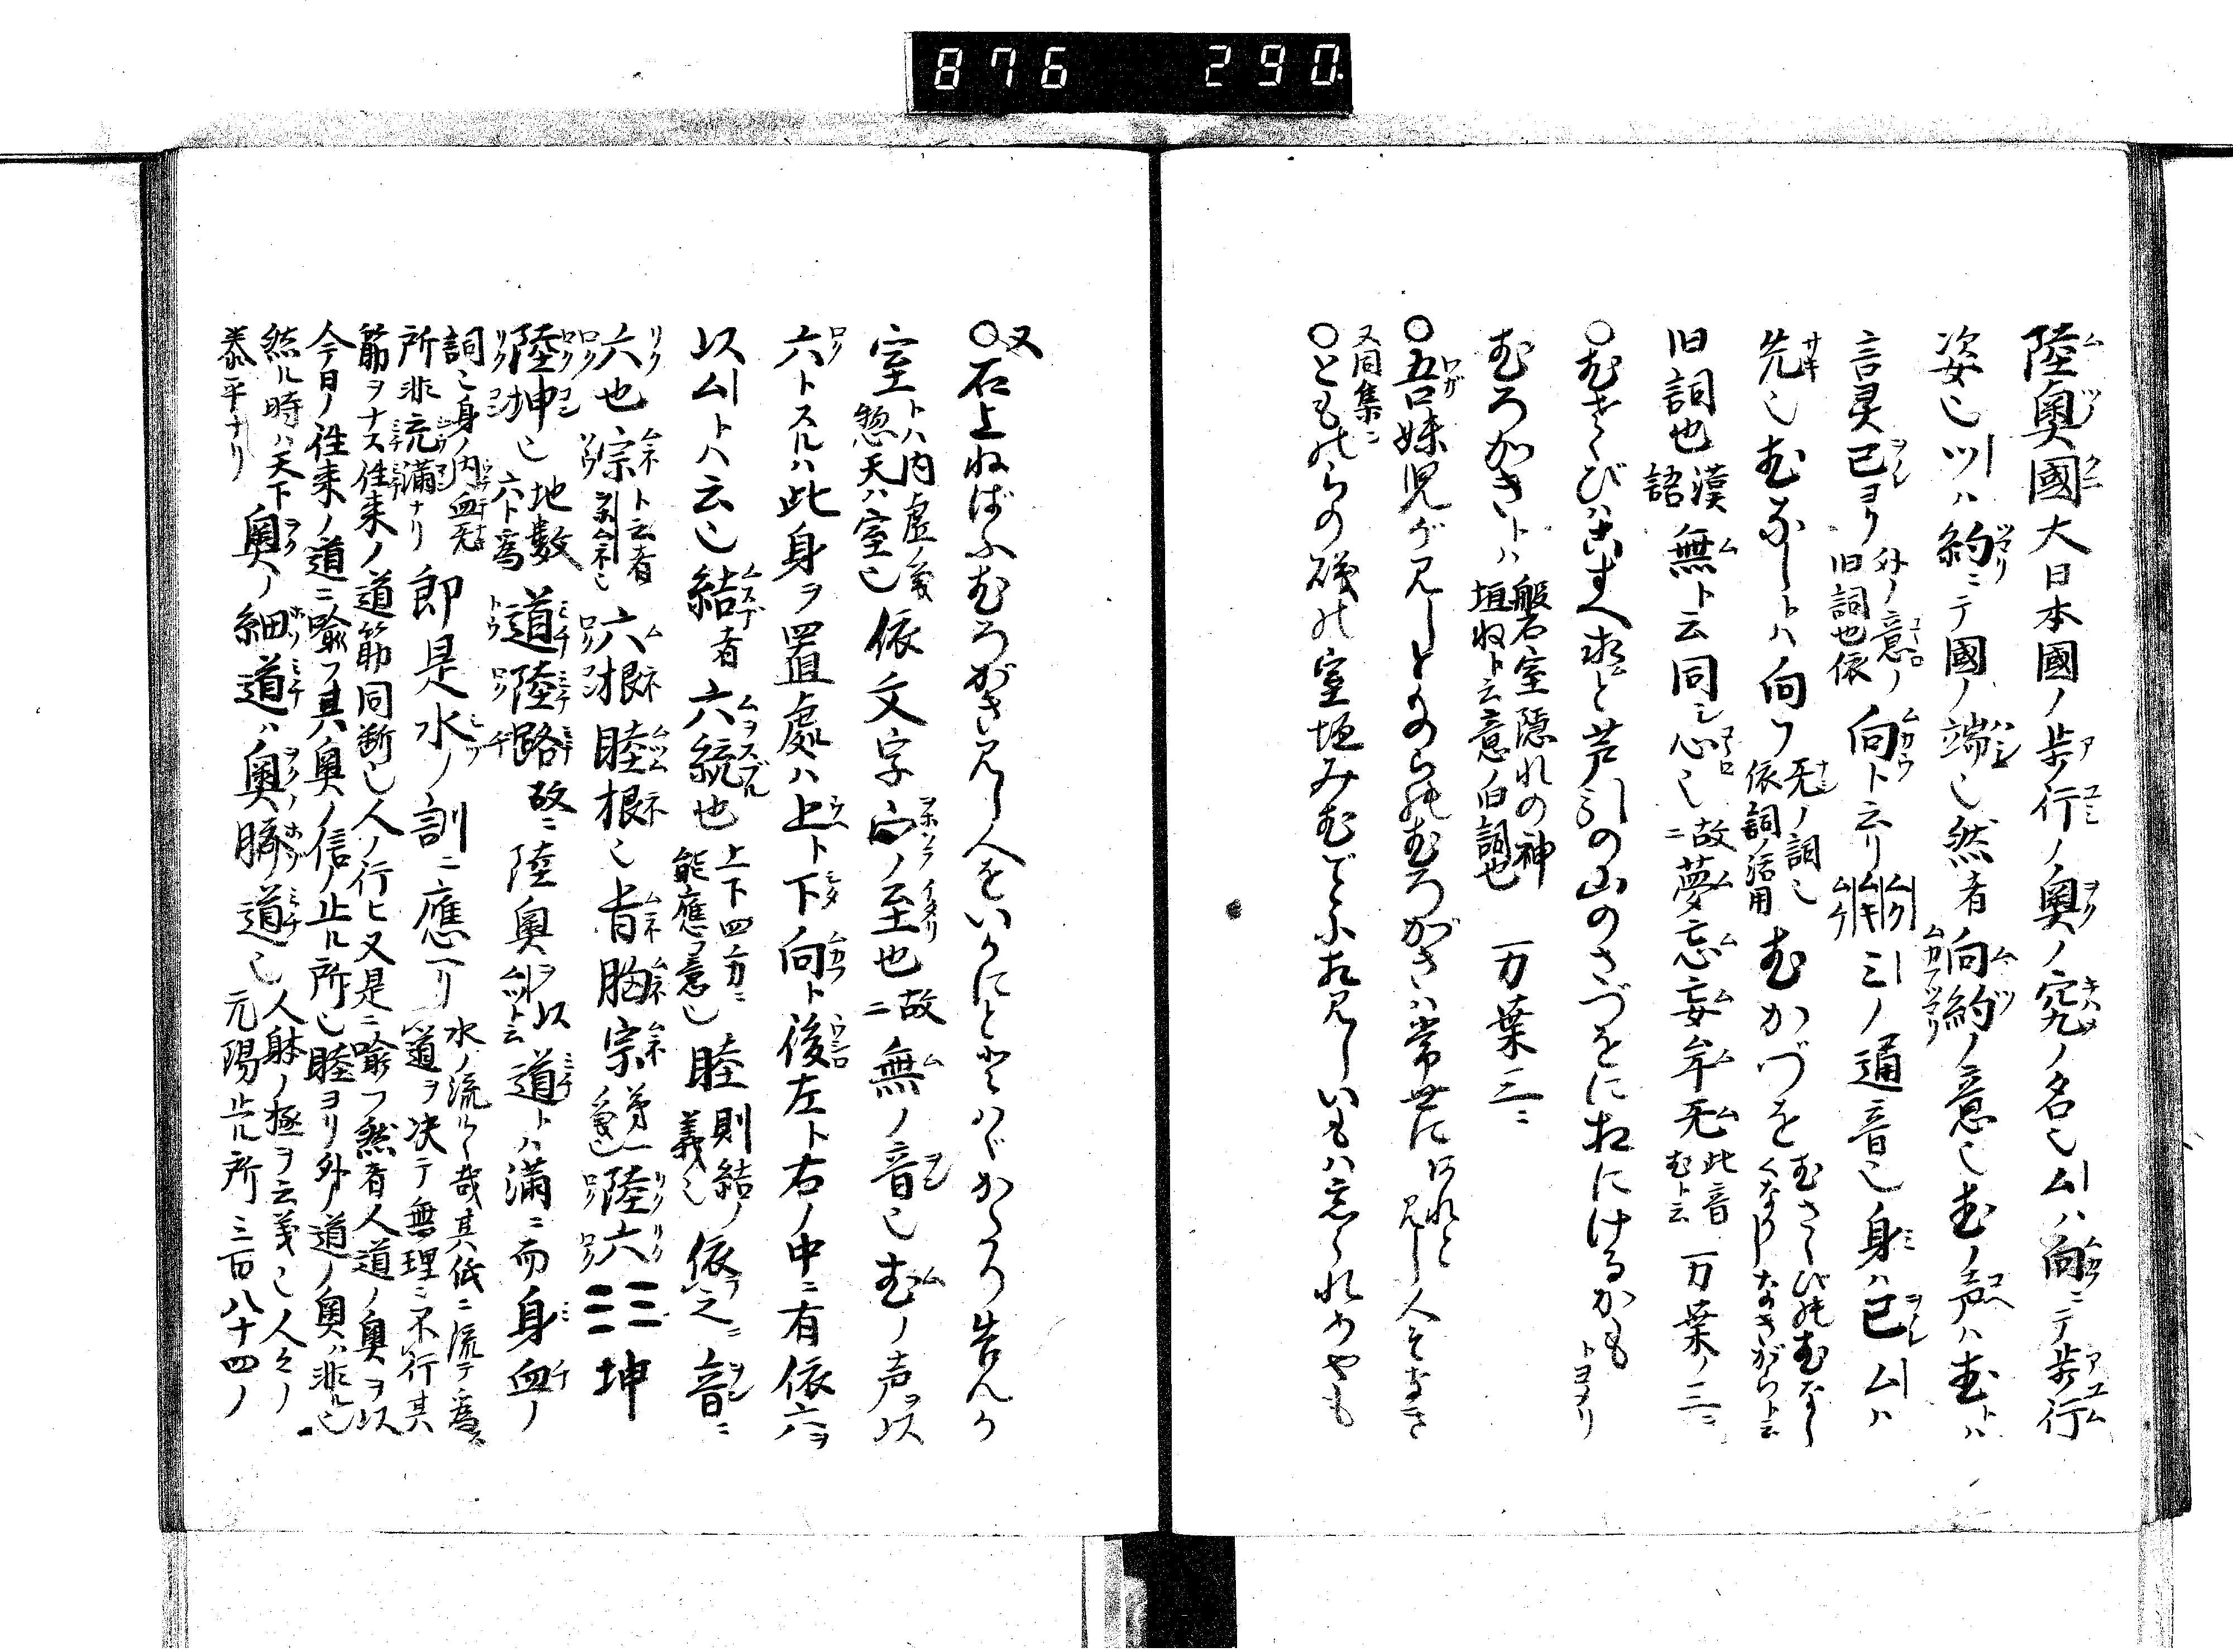 876 290.
陸奥國大日本國ノ歩行ノ奥ノ究ノ名也ムハ向ニテ歩行
姿也ツハ約ニテ國ノ端也然者向約ノ意也むノ声ハむトハ
言灵已ヨリ外ノ意ノ旧詞也依向ト云リムクムキムケミノ通音也身ハ已ムハ
先也むなしトハ向フ无ノ詞也依詞ノ活用むかづを
旧詞也漢語無ト云同シ心也故ニ夢忘妄牟无此音むト云万葉ノ三ニ
○むさゝびハこずゑ求と芦引の山のさづをに相にけるかもトヨメリ
むろがきトハ般石室隠れの神垣ねト云意ノ旧詞也 万葉三ニ
○吾妹児ガ見しとものうらのむろがきハ常世にあれと見し人そなき
又同集ニ
○とものうらの磯の室垣みむごとに相見しいもハ忘られめやも
又
○石上ねばふむろがき見し人をいかにとととハゞかたり告んか
室トハ内虚ノ義惣天ハ室也依文字宀ノ至也故ニ無ノ音也むノ声以
六トスルハ此身ヲ置處ハ上ト下向ト後左ト右ノ中ニ有依六ヲ
以ムトハ云也結者六統也上下四方ニ能應ノ意也睦則結ノ義也依之ニ音ニ
六也宗ト云者六根睦根也肯胸宗陸六☷坤
陸坤也地数六ト為道陸路故ニ陸奥ヲムツト云以道トハ満ニ而身血ノ
詞也身ノ内血无所非充満ナリ即是水ノ訓ニ應リ水ノ流ルヽ哉其低ニ流テ為道ヲ决テ無理ニ不行其
筋ヲナス往来ノ道筋同断也人ノ行ヒ又是ニ喩フ然者人道ノ奥ヲ以
今日ノ往来ノ道ニ喩フ其奥ノ信ノ止ル所也睦ヨリ外ノ道ノ奥ハ非ル也
然ル時ハ天下泰平ナリ奥ノ細道ハ奥臍道也人躰ノ極ヲ云義也人々ノ元陽止ル所三百八十四ノ